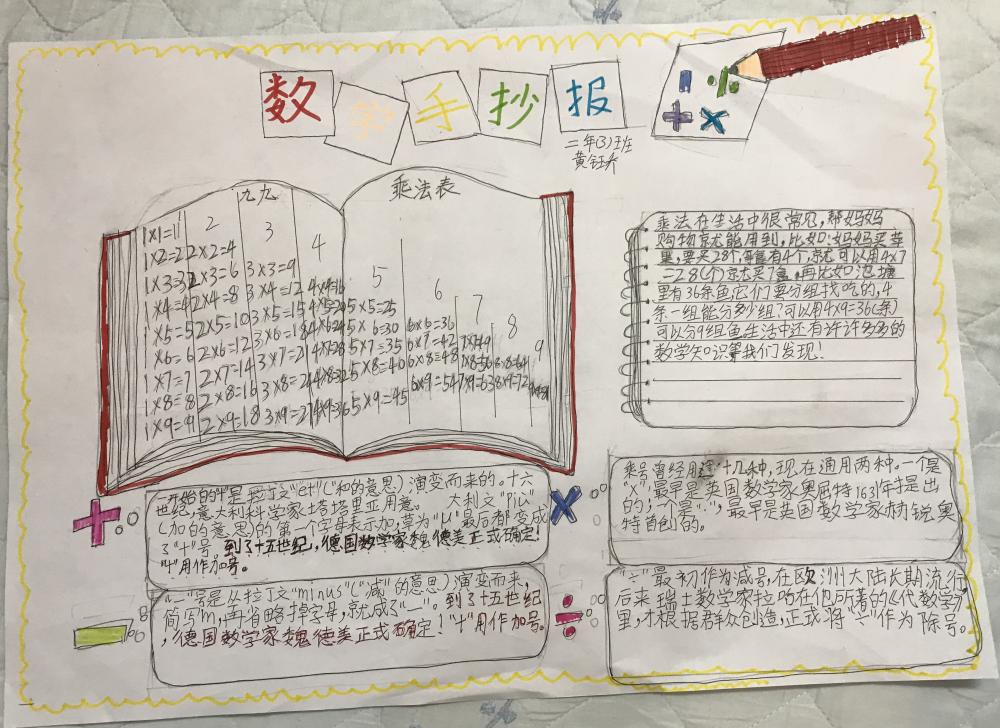 数学手抄报
二年(3)班
黄钰
九九
乘法表
1×1=1
2
3
4
5
6
7
8
9
1×2=2 2×2=4
1×3=3 2×3=6 3×3=9
1×4=4 2×4=8 3×4=12 4×4=16
1×5=5 2×5=10 3×5=15 4×5=20 5×5=25
1×6=6 2×6=12 3×6=18 4×6=24 5×6=30 6×6=36
1×7=7 2×7=14 3×7=21 4×7=28 5×7=35 6×7=42 7×7=49
1×8=8 2×8=16 3×8=24 4×8=32 5×8=40 6×8=48 7×8=56 8×8=64
1×9=9 2×9=18 3×9=27 4×9=36 5×9=45 6×9=54 7×9=63 8×9=72 9×9=81
乘法在生活中很常见,帮妈妈
购物就能用到,比如:妈妈买苹
果,要买28个,每盒有4个,就可以用4×7
=28(个)就买7盒。再比如:池塘
里有36条鱼,它们要分组找吃的,4
条一组能分多少组?可以用4×9=36(条)
可以分9组鱼生活中还有许许多多的
数学知识等我们发现!
+
一开始的"+"是拉丁文"et"("和的意思)演变而来的。十六
世纪,意大利科学家塔塔里亚用意 大利文"Più"
(加的意思)的第一个字母表示加,草为"μ"最后都变成
了"+"号。到了十五世纪,德国数学家魏德美正式确定!
"+"用作加号。
×
乘号曾经用 十几种,现在通用两种。一个是
"×",最早是英国数学家奥屈特1631年提出
的,一个是"·",最早是英国数学家赫锐奥
特首创的。
−
"—"号是从拉丁文"minus"("减"的意思)演变而来,
简写m,再省略掉字母,就成了"—"。到了十五世纪
,德国数学家魏德美正式确定!"+"用作加号。
÷
"÷"最初作为减号,在欧洲大陆长期流行,
后来瑞士数学家拉哈在他所著的《代数学》
里,才根据群众创造,正式将"÷"作为除号。